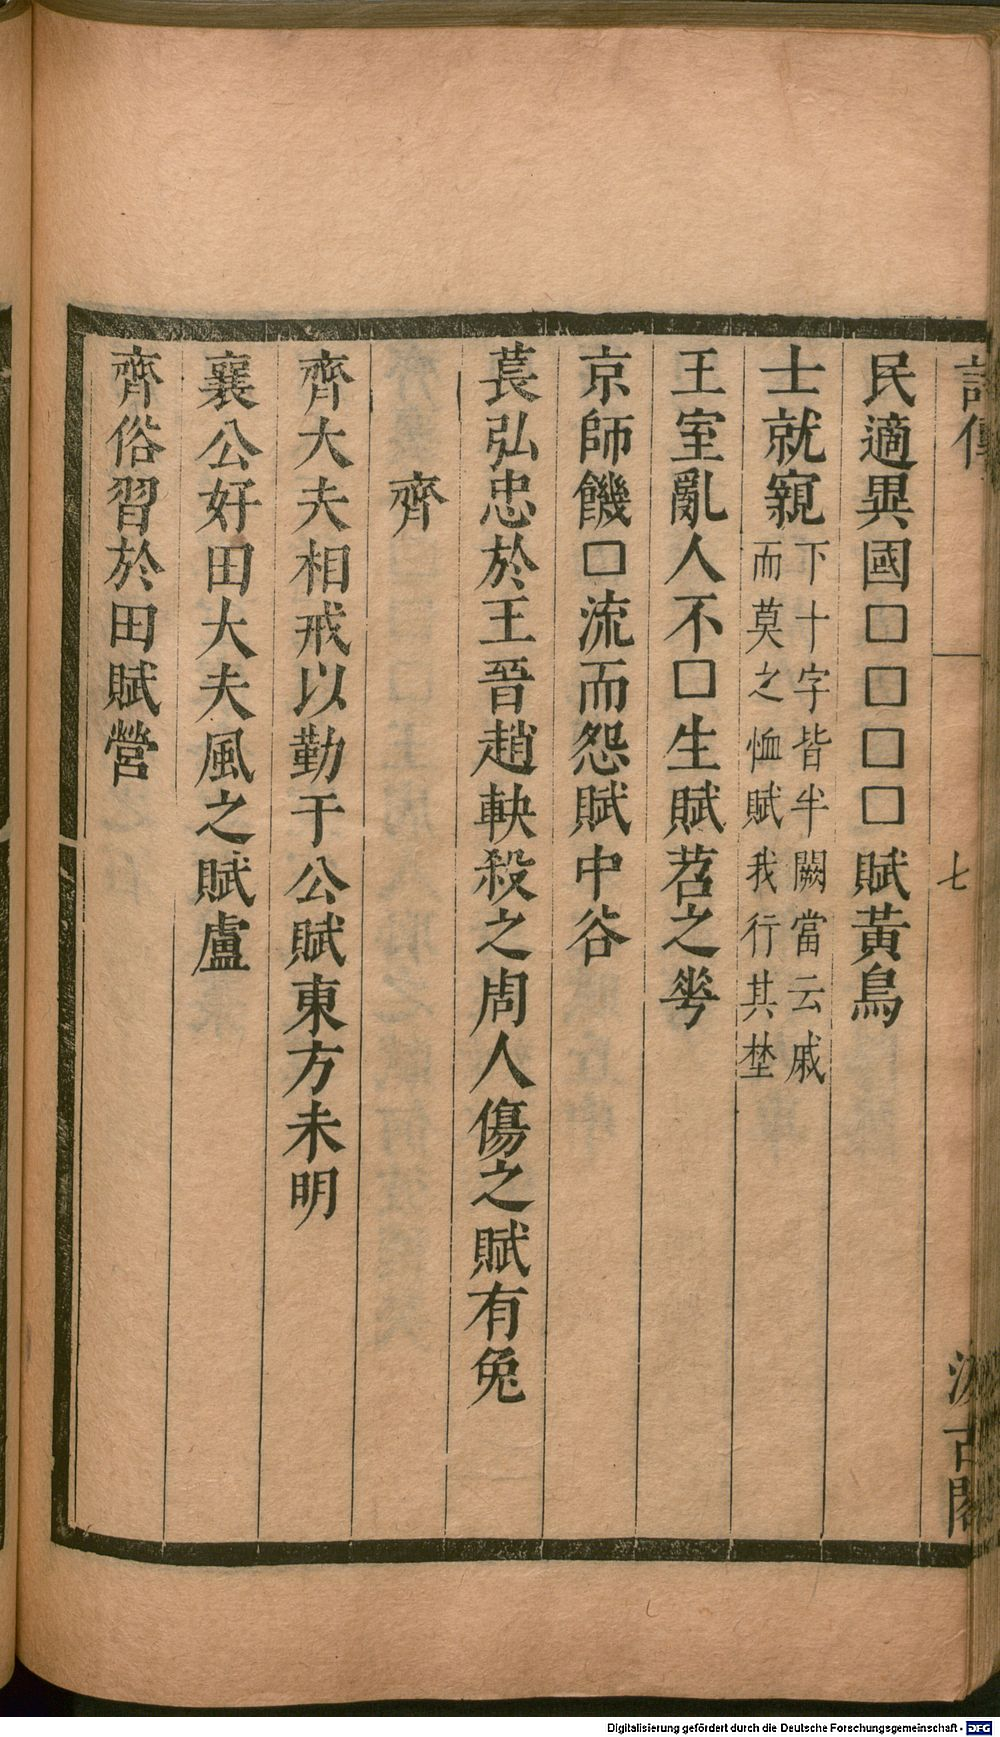 詩傳
七
汲古閣
民適異國□□□□賦黃鳥
士就窺下十字皆半闕當云戚
而莫之恤賦我行其埜
王室亂人不□生賦苕之華
京師饑□流而怨賦中谷
萇弘忠於王晉趙軮殺之周人傷之賦有兔
齊
齊大夫相戒以勤于公賦東方未明
襄公好田大夫風之賦盧
齊俗習於田賦營
Digitalisierung gefördert durch die Deutsche Forschungsgemeinschaft - DFG